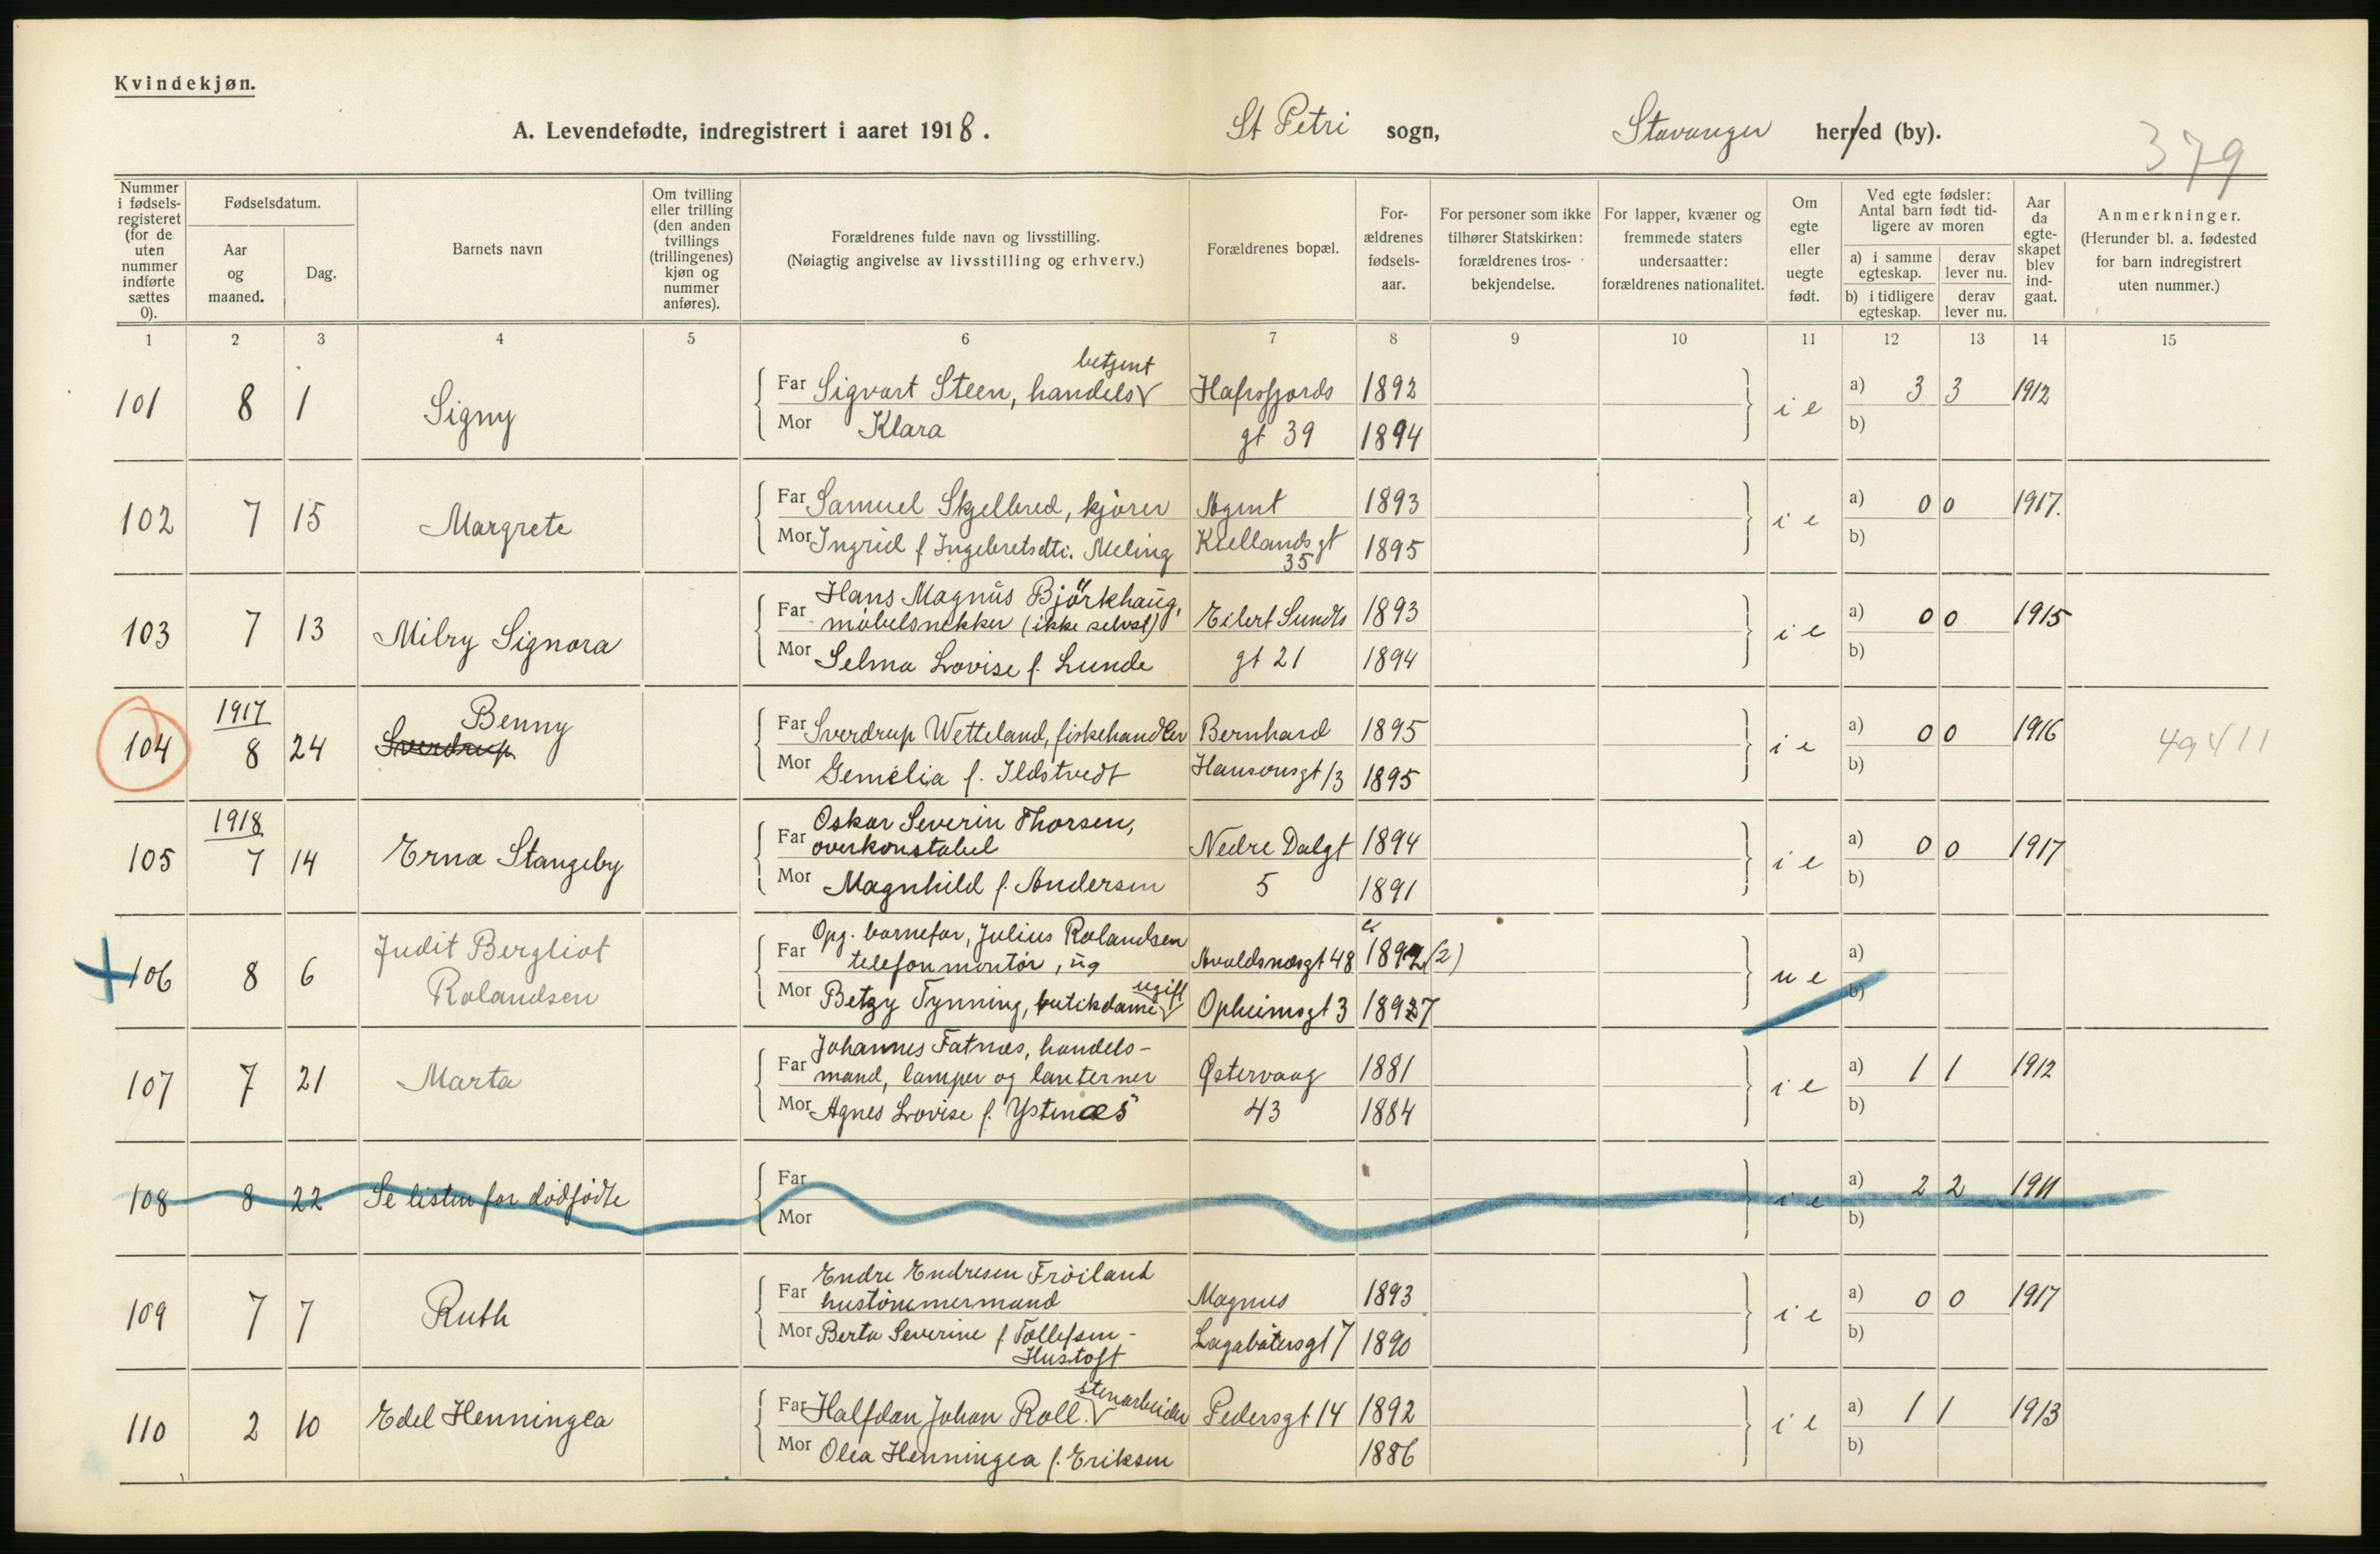 Kvindekjøn.
A. Levendefødte, indregistrert i aaret 1918. St Petri sogn, Stavanger herred (by).
379
Nummer i fødsels-registeret (for de uten nummer indførte sættes 0).
Fødselsdatum.
Aar og maaned.
Dag.
Barnets navn
Om tvilling eller trilling (den anden tvillings (trillingenes) kjøn og nummer anføres).
Forældrenes fulde navn og livsstilling.
(Nøiagtig angivelse av livsstilling og erhverv.)
Forældrenes bopæl.
For-ældrenes fødsels-aar.
For personer som ikke tilhører Statskirken: forældrenes tros-bekjendelse.
For lapper, kvæner og fremmede staters undersaatter: forældrenes nationalitet.
Om egte eller uegte født.
Ved egte fødsler: Antal barn født tid-ligere av moren
a) i samme egteskap. derav lever nu.
b) i tidligere egteskap. derav lever nu.
Aar da egte-skapet blev ind-gaat.
Anmerkninger.
(Herunder bl. a. fødested for barn indregistrert uten nummer.)
1 2 3 4 5 6 7 8 9 10 11 12 13 14 15
betjent
101 8 1 Signy Far Sigvart Steen, handels Hafrsfjords 1892 i e a) 3 3 1912
Mor Klara gt 39 1894 b)
102 7 15 Margrete Far Samuel Skjelbred, kjører Agent 1893 i e a) 0 0 1917.
Mor Ingrid f Ingebretsdtr. Meling Kiellands gt 35 1895 b)
Hans Magnus Björkhaug,
103 7 13 Milry Signora Far møbelsnekker (ikke selvst) Eilert Sundts 1893 i e a) 0 0 1915
Mor Selma Lovise f. Lunde gt 21 1894 b)
1917 Benny
104 8 24 Sverdrup Far Sverdrup Wetteland, fiskehandler Bernhard 1895 i e a) 0 0 1916 49411
Mor Gemelia f. Ildstvedt Hansensgt 13 1895 b)
1918 Oskar Severin Thorsen,
105 7 14 Erna Stangeby Far overkonstabel Nedre Dalgt 1894 i e a) 0 0 1917
Mor Magnhild f. Andersen 5 1891 b)
Judit Bergliot Opg. barnefar, Julius Rolandsen
106 8 6 Rolandsen Far telefonmontør, ug Avaldsnesgt 48 1892 (2) u e a)
ugift
Mor Betzy Tynning, butikdame Opheimsgt 3 1897 b)
Johannes Fatnæs, handels-
107 7 21 Marta Far mand, lamper og lanterner Østervaag 1881 i e a) 1 1 1912
Mor Agnes Lovise f. Ystenæs 43 1884 b)
108 8 22 Se listen for dødfødte Far i e a) 2 2 1911
Mor b)
Endre Endresen Frøiland
109 7 7 Ruth Far hustømmermand Magnus 1893 i e a) 0 0 1917
Mor Berta Severine f Tollefsen - Hustoft Lagabøtersgt 7 1890 b)
stenarbeider
110 2 10 Edel Henningea Far Halfdan Johan Roll. Pedersgt 14 1892 i e a) 1 1 1913
Mor Olea Henningea f. Eriksen 1886 b)